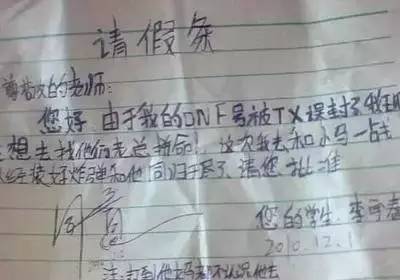 请假条
尊敬的老师:
您好,由于我的DNF号被TX误封了,我现
想去找他们老总拼命!这次我去和小马一战
经装好炸弹和他同归于尽了,请您批准
同意
您的学生:李
2010.12.1
注:打到他妈都不认识他去